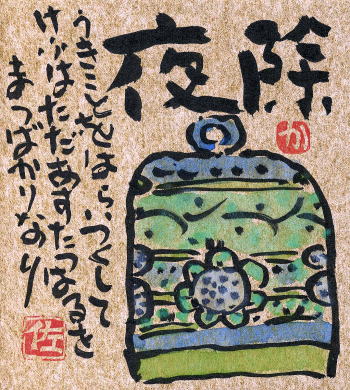 除夜
うきことをはらいつくして
けふはただあすたつはるを
まつばかりなり
か
佐